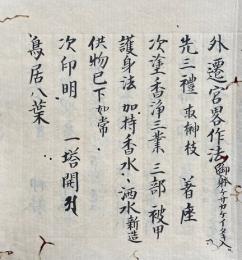 外遷宮畧作法
先三禮 取榊枝 著座
次塗香浄三業 三部 被甲
護身法 加持香水、洒水新造
供物已下如常
次印明 一塔開引
鳥居八葉